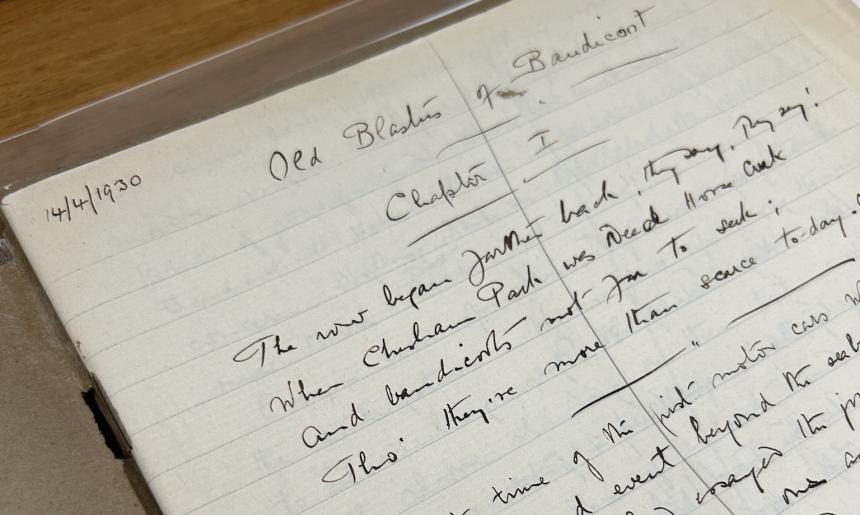 Old Blastus of Bandicoot
14/4/1930
Chapter I
The row began farther back, they say, they say!
When Chesham Park was Need Horse Creek
And bandicoots not far to seek;
Tho' they're more than scarce to-day.
time of the first motor cars
event beyond the
the